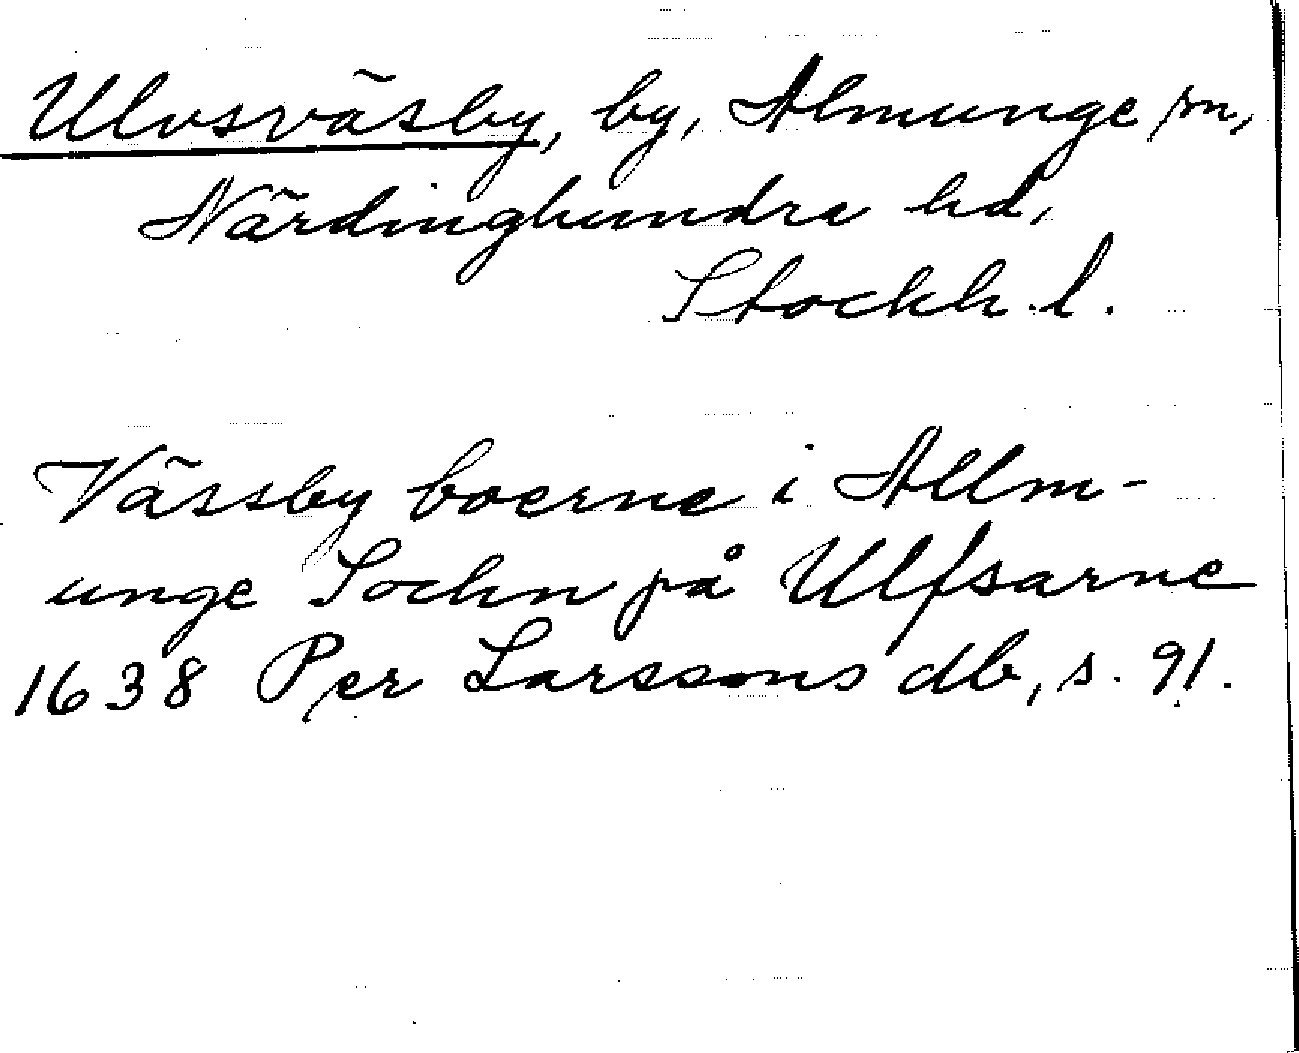 Ulvsväsby, by, Almunge sn,
Närdinghundra hd,
Stockh. l.
Vässby boerne i Allm-
unge Sochn på Ulfsarne
1638 Per Larssons db, s. 91.